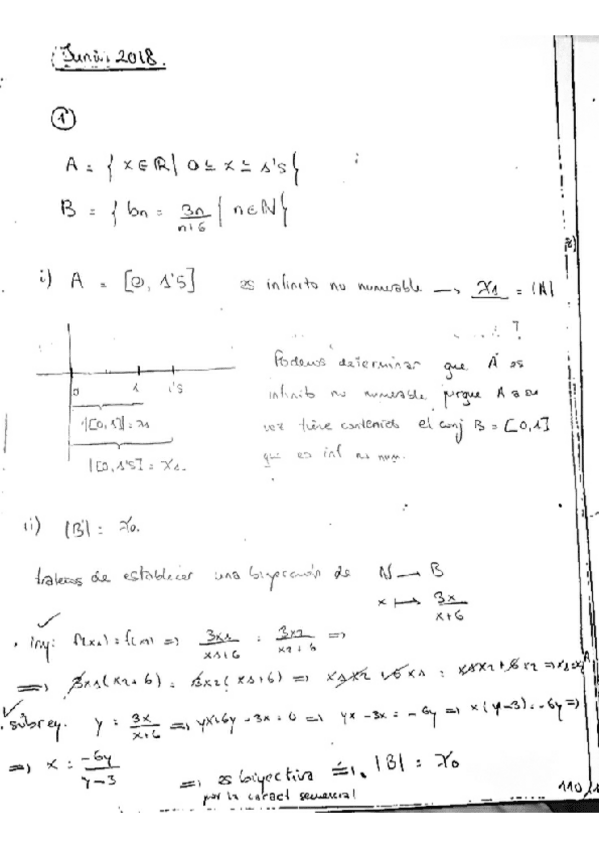 Junio 2018.
①
A = { x ∈ ℝ | 0 ≤ x ≤ 1's }
B = { bn = 3n/n+6 | n ∈ N }
i) A = [0, 1'5] es infinito no numerable → ℵ1 = |A|
?
Podemos determinar que A es
infinito no numerable porque A a su
0 1 1's
vez tiene contenido el conj B = [0,1]
|[0,1]| = ℵ1
que es inf no num.
|[0,1's] = ℵ1.
ii) |B| = ℵ0.
tratemos de establecer una biyección de N → B
x ↦ 3x/x+6
. iny: f(x1) = f(x2) => 3x1/x1+6 = 3x2/x2+6 =>
=> 3x1(x2+6) = 3x2(x1+6) => x1x2 + 6x1 = x1x2 + 6x2 => x1=x2
. sobrey. y = 3x/x+6 => yx+6y-3x=0 => yx-3x = -6y => x(y-3) = -6y =>
=> x = -6y/y-3 => es biyectiva => |B| = ℵ0
por la caract
110/